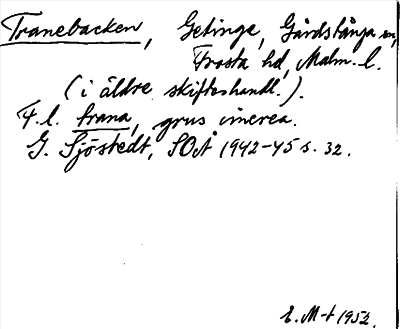 Tranebacken, Getinge, Gårdstånga sn,
Frosta hd, Malm. l.
(i äldre skifteshandl.).
F. l. trana, grus cinerea.
G. Sjöstedt, SOÅ 1942-45 s. 32.
E. M-t 1952.